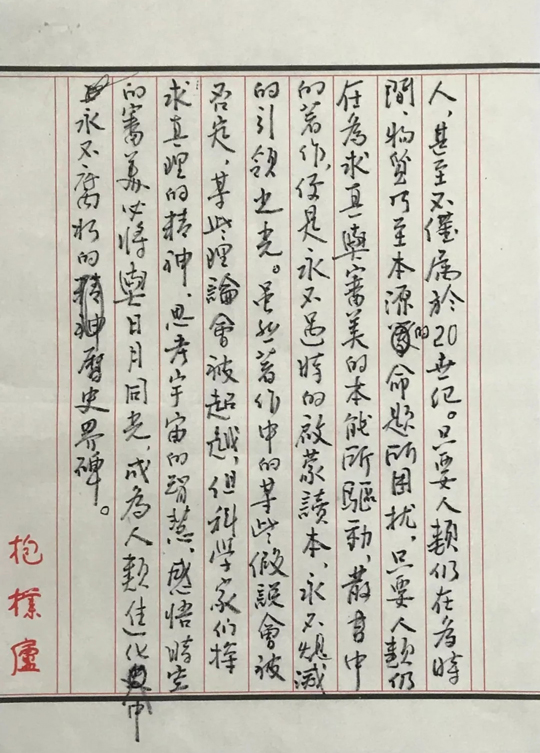 人，甚至不僅屬於20世纪。只要人類仍在為時
間、物質乃至本源的命题所困扰，只要人類仍
在為求真與審美的本能所驅動，叢書中
的著作，便是永不過時的啟蒙讀本、永不熄滅
的引領之光。虽然著作中的某些假說會被
否定，某些理論會被超越，但科學家们探
求真理的精神，思考宇宙的智慧，感悟時空
的審美必將與日月同光，成為人類進化中
永不腐朽的曆史界碑。
抱樸廬